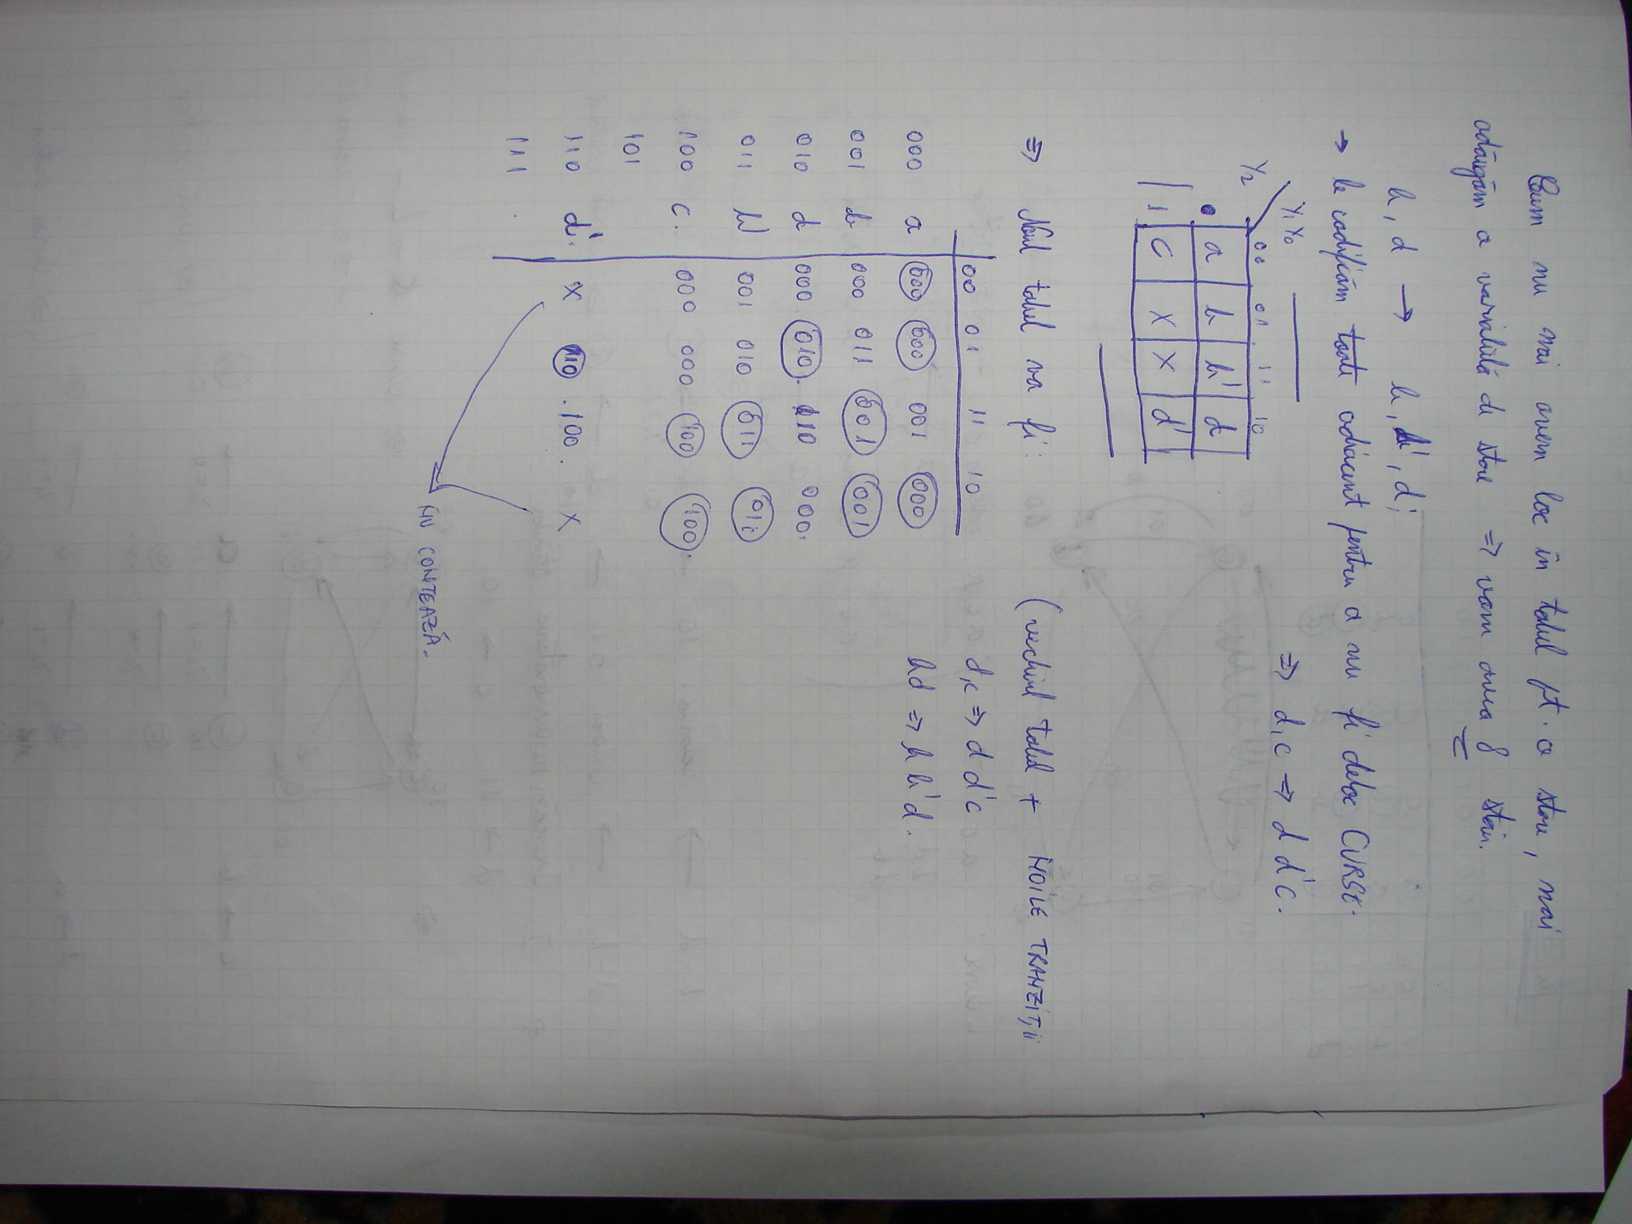 Cum nu mai avem loc în tabel pt. o stare, mai
adăugăm o variabilă de stare => vom avea 8 stări.
b, d → b, b', d'
→ le codificăm toate adiacent pentru a nu fi deloc CURSE.
=> d, c => d d' c.
Y2 Y1Y0 00 01 11 10
0 a b b' d
1 c X X d'
=> Noul tabel va fi: (vechiul tabel + NOILE TRANZIȚII
d, c => d d' c
bd => b b' d.
00 01 11 10
000 a 000 000 001 000
001 b 000 011 001 001
010 d 000 010. 110 000.
011 b' 001 010 011 011
100 c. 000 000 100 100.
101
110 d'. X 110 .100. X
111
NU CONTEAZĂ.